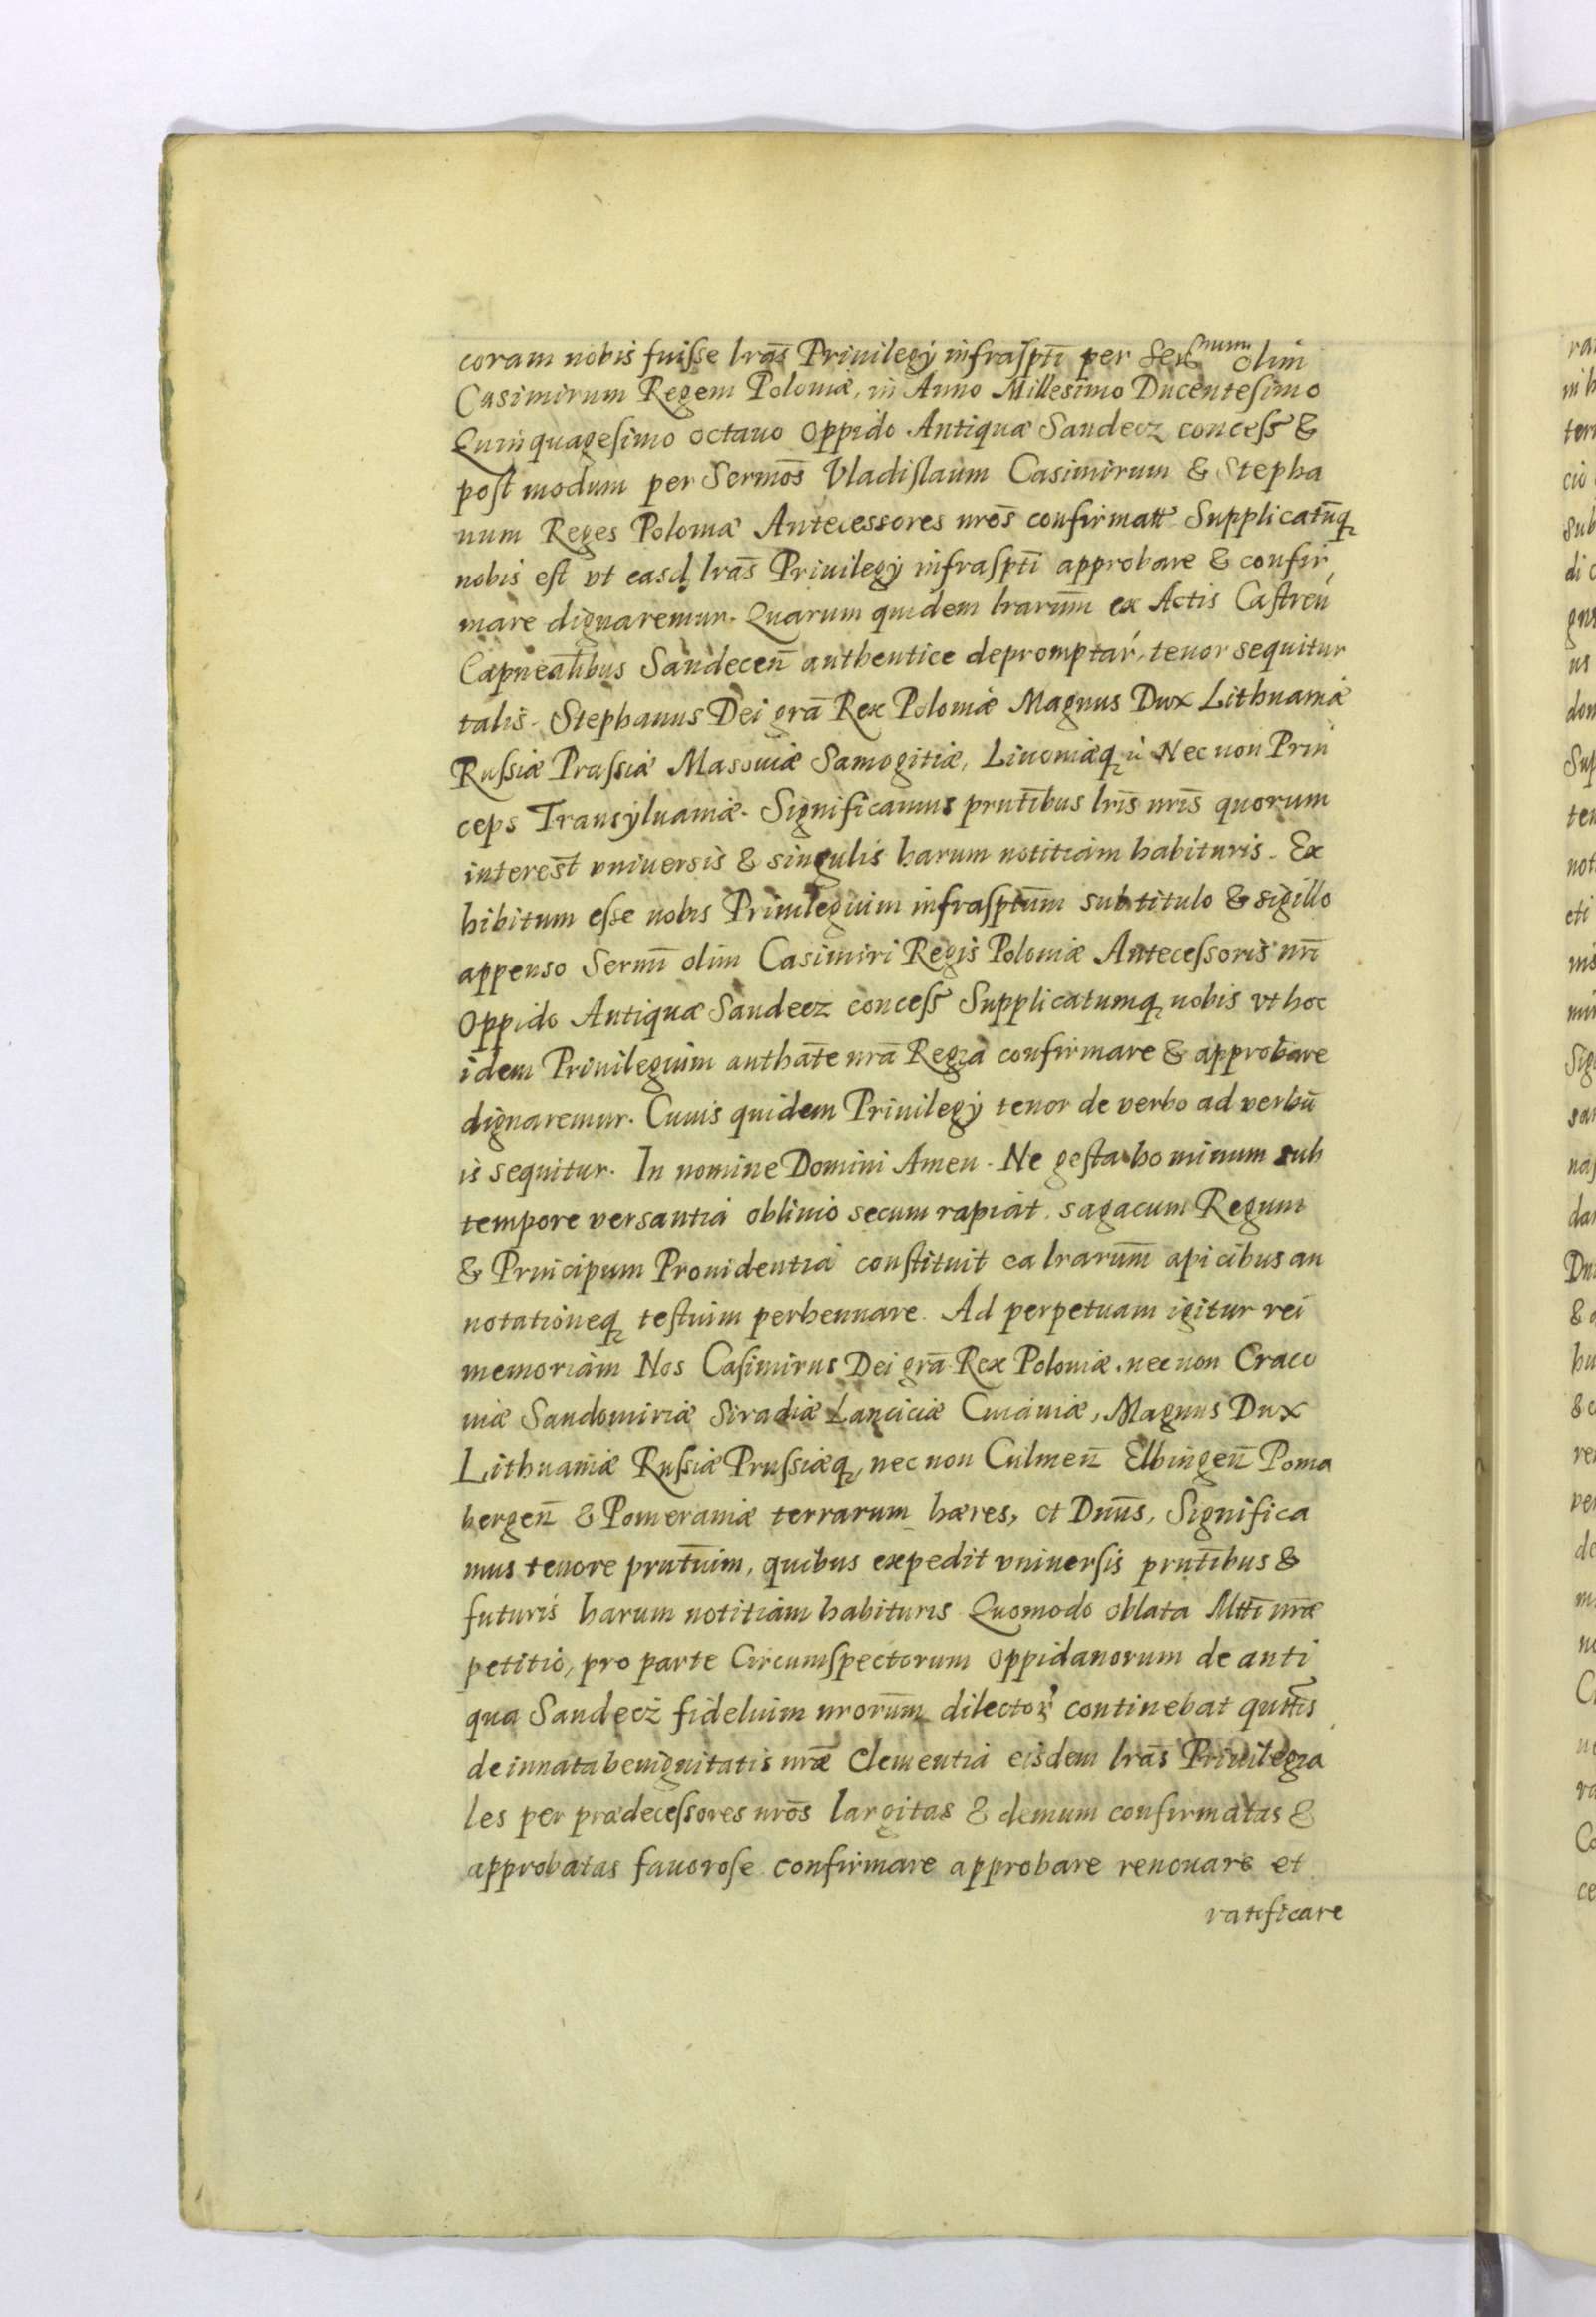 coram nobis fuiſse lrãs Priuilegÿ infraſpti̅ per Sermum olim
Casimirum Regem Poloniæ, in Anno Millesimo Ducenteſimo
Quinquageſimo octauo oppido Antiquæ Sandecz conceſs &
poſt modum per Sermo̅s Vladiſlaum Casimirum & Stepha
num Reges Poloniæ Antecessores nro̅s confirmatt Supplicatu̅q
nobis eſt vt easd lrãs Priuilegÿ infraſpti̅ approbare & confir
mare dignaremur. Quarum quidem lraru̅m ex Actis Caſtren̅
Capnealibus Sandecen̅ authentice depromptar, tenor sequitur
talis. Stephanus Dei grã Rex Poloniæ Magnus Dux Lithuaniæ
Ruſsiæ Pruſsiæ Masouiæ Samogitiæ, Liuoniæq Nec non Prin
ceps Transÿluaniæ. Significamus prnti̅bus lri̅s nri̅s quorum
interest vniuersis & singulis harum notitiam habituris. Ex
hibitum eſse nobis Priuilegium infraſptu̅m sub titulo & sigillo
appenso Sermi̅ olim Casimiri Regis Poloniæ Anteceſsoris nri̅
Oppido Antiquæ Sandecz conceſs Supplicatumq nobis vt hoc
idem Priuilegium authãte nrã Regia confirmare & approbare
dignaremur. Cuius quidem Priuilegÿ tenor de verbo ad verbu̅
is sequitur. In nomine Domini Amen. Ne geſta hominum sub
tempore versantia obliuio secum rapiat. sagacum Regum
& Principum Prouidentia conſtituit ea lraru̅m apicibus an
notationeq teſtium perhennare. Ad perpetuam igitur rei
memoriam Nos Caſimirus Dei grã Rex Poloniæ, nec non Craco
uiæ Sandomiriæ Siradiæ Lanciciæ Cuiauiæ, Magnus Dux
Lithuaniæ Ruſsiæ Pruſsiæq, nec non Culmen̅ Elbingen̅ Poma
bergen̅ & Pomeraniæ terrarum hæres, et Dnu̅s, Significa
mus tenore prnti̅um, quibus expedit vniuerſis prnti̅bus &
futuris harum notitiam habituris Quomodo oblata Mtti̅ nræ̅
petitio, pro parte Circumſpectorum oppidanorum de anti
qua Sandecz fidelium nroru̅m dilector continebat quttis
de innata benignitatis nræ̅ Clementia eisdem lrãs Priuilegia
les per prædeceſsores nro̅s largitas & demum confirmatas &
approbatas fauoroſe confirmare approbare renouare et
ratificare